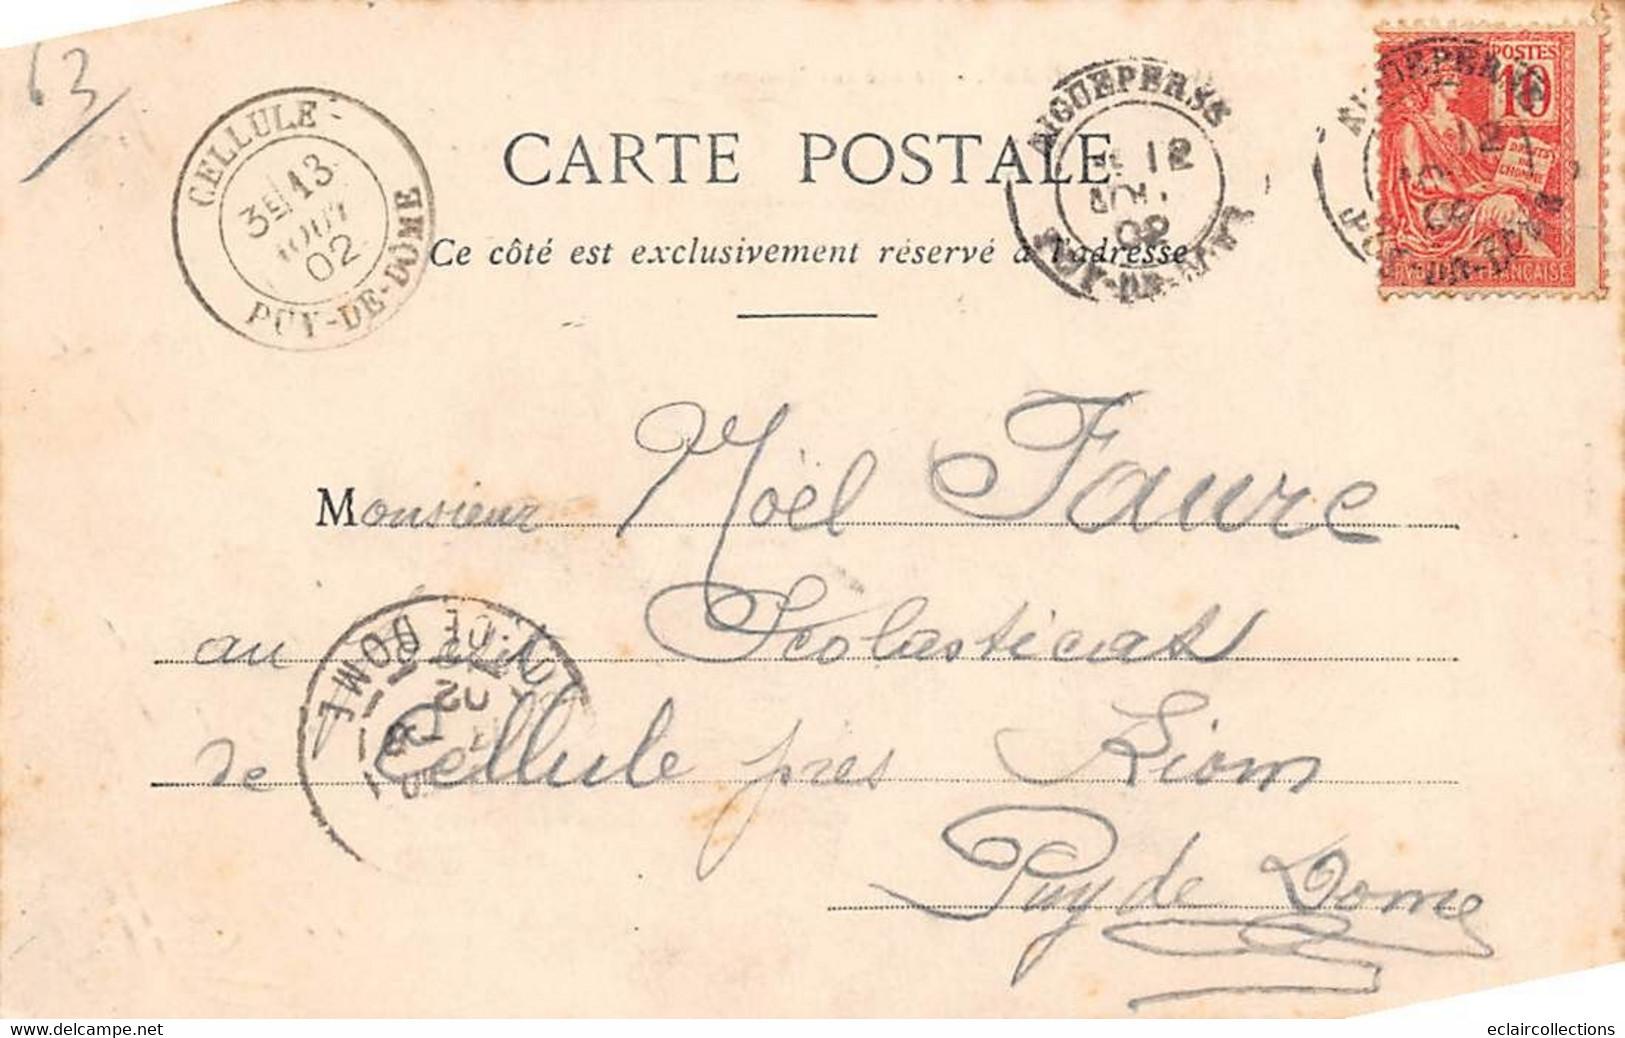 63
CELLULE
3E 13
AOUT
02
PUY-DE-DÔME
AIGUEPERSE
12
AOUT
02
PUY-DE-DOME
POSTES
10
DROITS DE L'HOMME
FRANÇAISE
CARTE POSTALE
Ce côté est exclusivement réservé à l'adresse
Monsieur Noël Faure
au Scolasticat
de Cellule près Riom
Puy de Dome
DE DOME
02
eclaircollections
www.delcampe.net